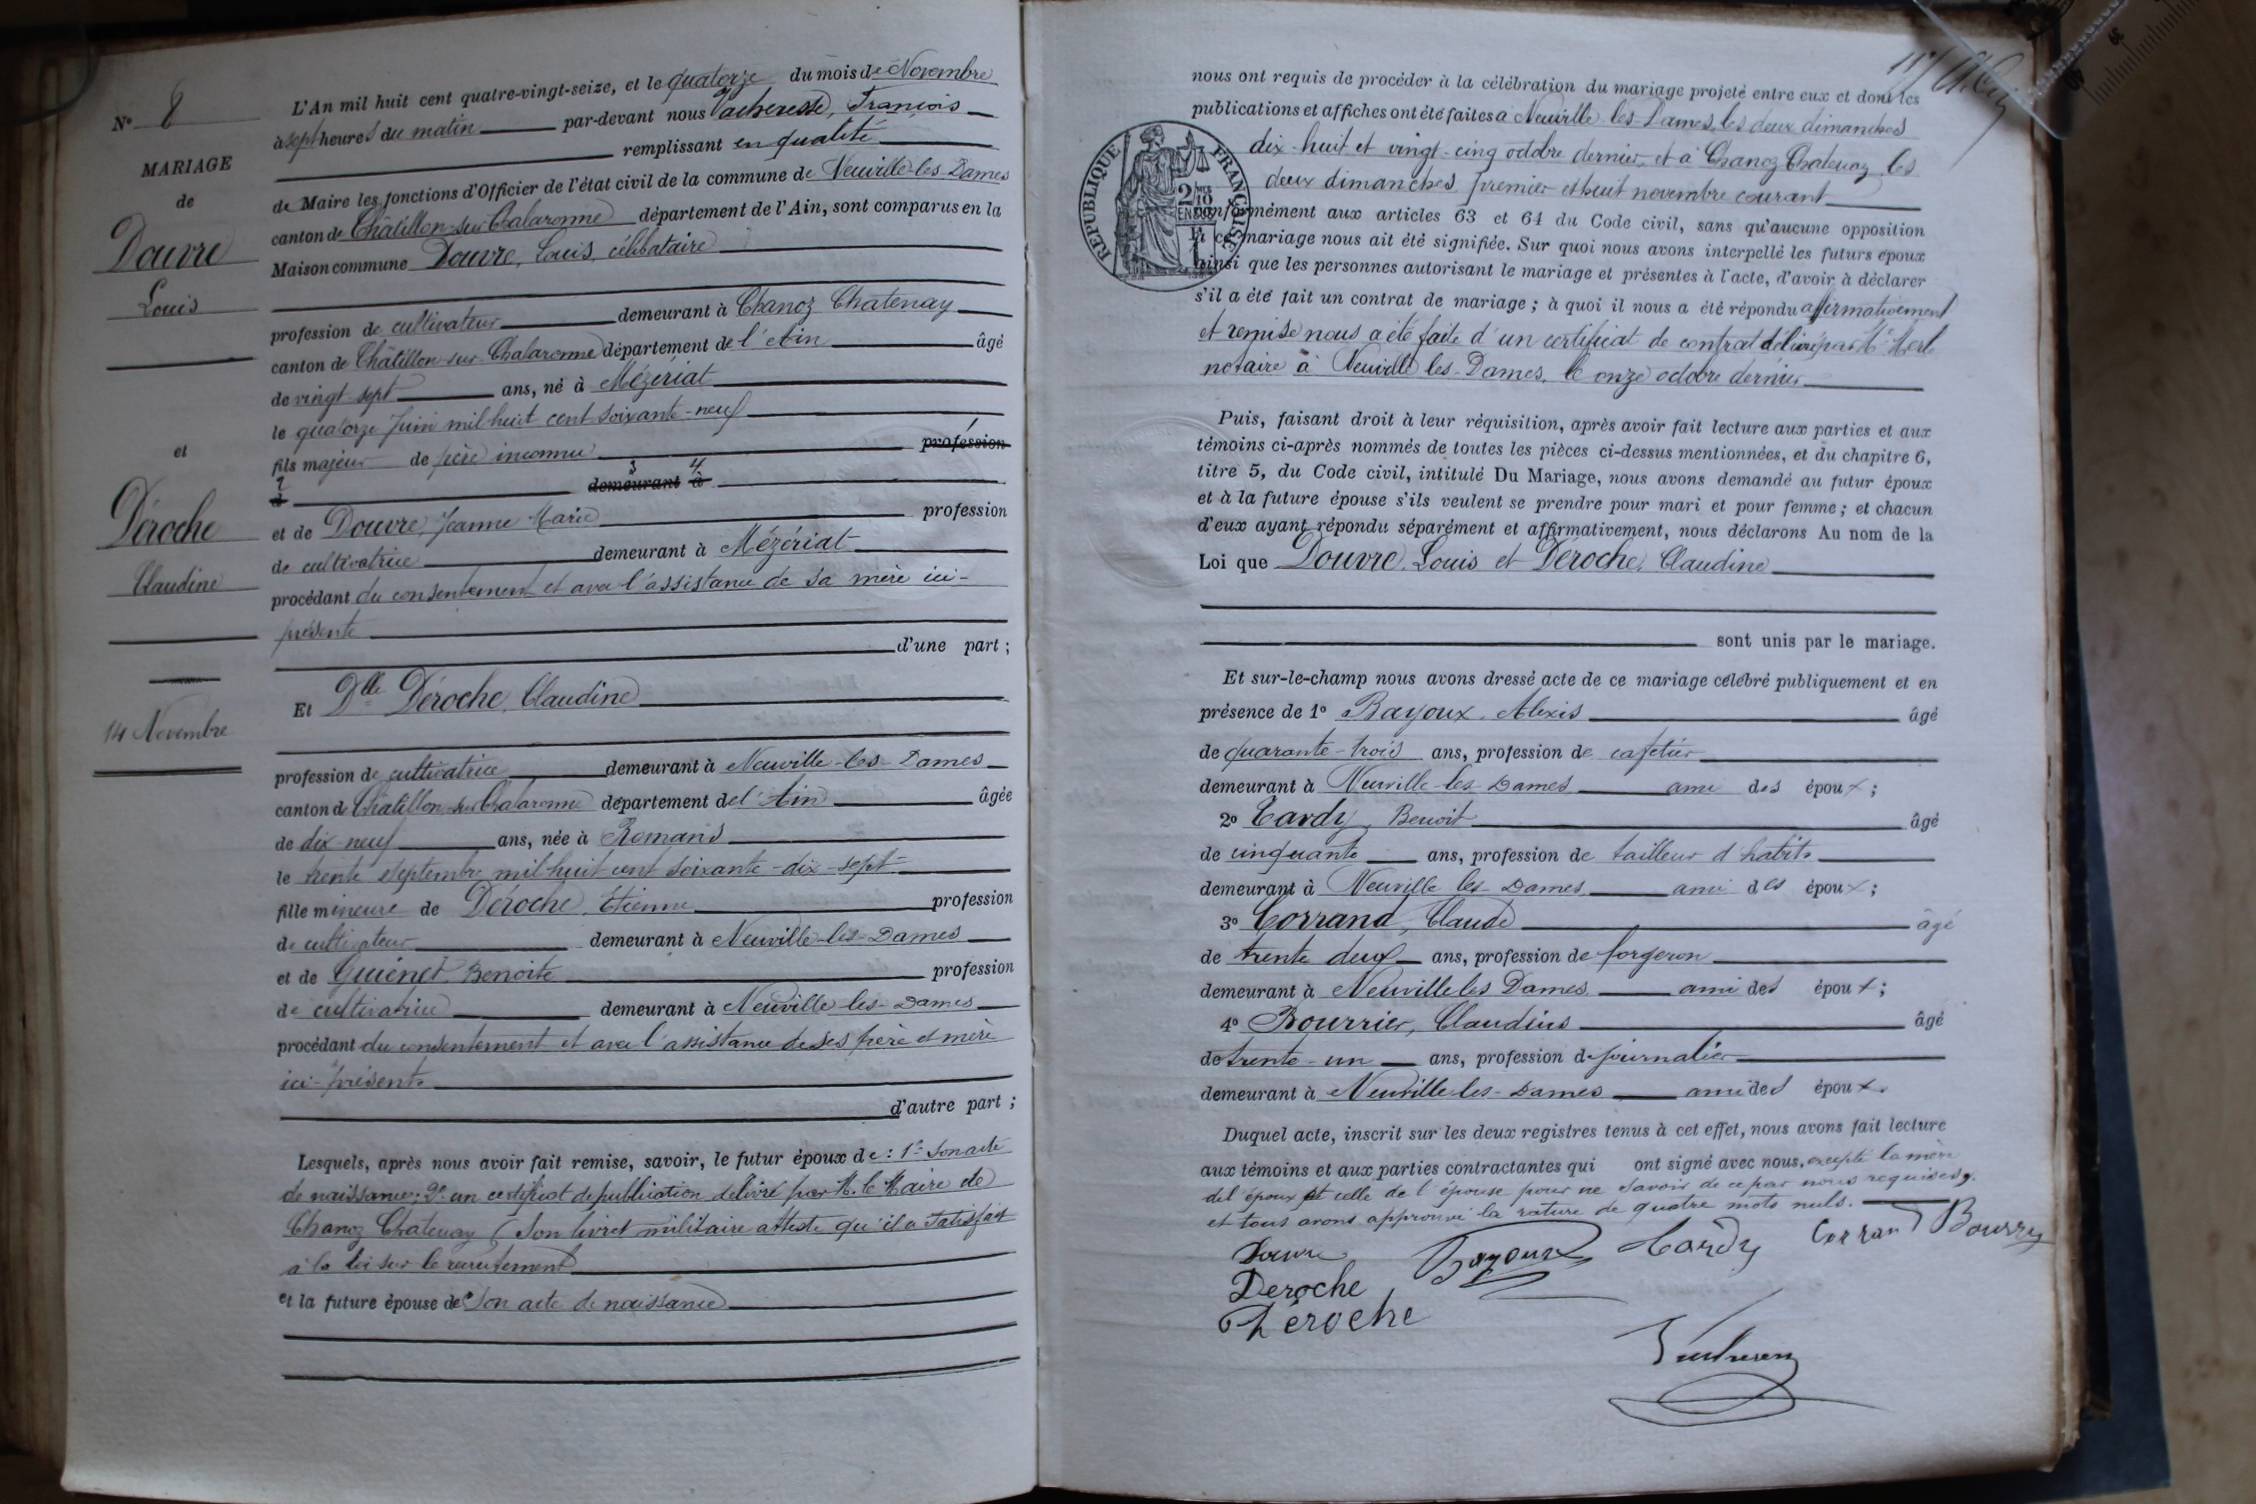 N° 8
MARIAGE
de
Douvre
Louis
et
Déroche
Claudine
14 Novembre
L'An mil huit cent quatre-vingt-seize, et le quatorze du mois de Novembre
à sept heures du matin par-devant nous Vacheresse, François
remplissant en qualité
de Maire les fonctions d'Officier de l'état civil de la commune de Neuville-les-Dames
canton de Châtillon-sur-Chalaronne département de l'Ain, sont comparus en la
Maison commune Douvre, Louis, célibataire
profession de cultivateur demeurant à Chanoz Chatenay
canton de Châtillon-sur-Chalaronne département de l'Ain âgé
de vingt-sept ans, né à Mézériat
le quatorze Juin mil huit cent soixante-neuf
fils majeur de père inconnu profession
2 3 4
demeurant à
et de Douvre, Jeanne Marie profession
de cultivatrice demeurant à Mézériat
procédant du consentement et avec l'assistance de sa mère ici-
présente
d'une part ;
Et Dlle Déroche, Claudine
profession de cultivatrice demeurant à Neuville-les-Dames
canton de Châtillon-sur-Chalaronne département de l'Ain âgée
de dix-neuf ans, née à Romans
le trente Septembre mil huit cent soixante-dix-sept
fille mineure de Déroche, Etienne profession
de cultivateur demeurant à Neuville-les-Dames
et de Guénet, Benoite profession
de cultivatrice demeurant à Neuville-les-Dames
procédant du consentement et avec l'assistance de ses père et mère
ici-présents
d'autre part ;
Lesquels, après nous avoir fait remise, savoir, le futur époux de : 1° Son acte
de naissance; 2° un certificat de publication délivré par M. le Maire de
Chanoz Chatenay (Son livret militaire atteste qu'il a satisfait
à la loi sur le recrutement
et la future épouse de Son acte de naissance
nous ont requis de procéder à la célébration du mariage projeté entre eux et dont les
publications et affiches ont été faites à Neuville les Dames, les deux dimanches
dix-huit et vingt-cinq octobre dernier, et à Chanoz Chatenay les
deux dimanches premier et huit novembre courant
RÉPUBLIQUE FRANÇAISE
conformément aux articles 63 et 64 du Code civil, sans qu'aucune opposition
à ce mariage nous ait été signifiée. Sur quoi nous avons interpellé les futurs époux
ainsi que les personnes autorisant le mariage et présentes à l'acte, d'avoir à déclarer
s'il a été fait un contrat de mariage ; à quoi il nous a été répondu affirmativement
et remise nous a été faite d'un certificat de contrat délivré par Me
notaire à Neuville les-Dames, le onze octobre dernier
Puis, faisant droit à leur réquisition, après avoir fait lecture aux parties et aux
témoins ci-après nommés de toutes les pièces ci-dessus mentionnées, et du chapitre 6,
titre 5, du Code civil, intitulé Du Mariage, nous avons demandé au futur époux
et à la future épouse s'ils veulent se prendre pour mari et pour femme ; et chacun
d'eux ayant répondu séparément et affirmativement, nous déclarons Au nom de la
Loi que Douvre, Louis et Déroche, Claudine
sont unis par le mariage.
Et sur-le-champ nous avons dressé acte de ce mariage célébré publiquement et en
présence de 1° Bayoux, Alexis âgé
de quarante-trois ans, profession de cafetier
demeurant à Neuville-les-Dames ami des époux ;
2° Tardy, Benoit âgé
de cinquante ans, profession de tailleur d'habits
demeurant à Neuville les-Dames ami des époux ;
3° Corrand, Claude âgé
de trente deux ans, profession de forgeron
demeurant à Neuville les Dames ami des époux ;
4° Bourrier, Claudius âgé
de trente-un ans, profession de journalier
demeurant à Neuville-les-Dames ami des époux.
Duquel acte, inscrit sur les deux registres tenus à cet effet, nous avons fait lecture
aux témoins et aux parties contractantes qui ont signé avec nous, excepté la mère
de l'époux et celle de l'épouse pour ne savoir de ce par nous requises,
et tous avons approuvé la rature de quatre mots nuls.
Douvre Bayoux Tardy Corrand Bourry
Deroche
Déroche